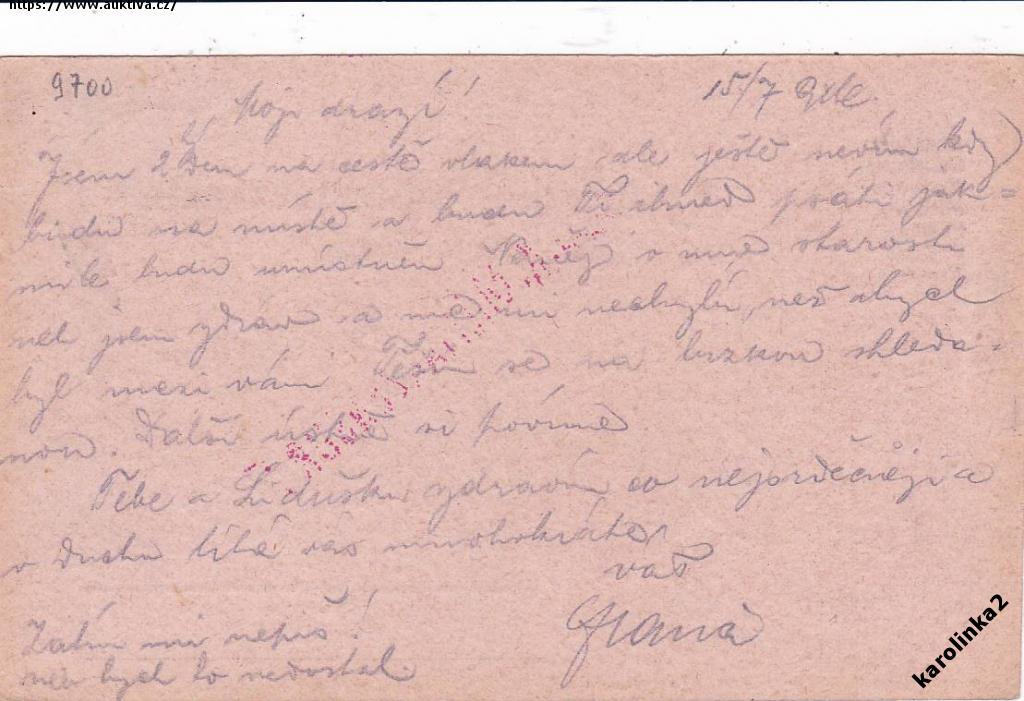 https://www.auktiva.cz/
9700
15/7
Moji drazí!
Jsem 2 den na cestě vlakem ale ještě nevím kdy
budu na místě a budu Ti ihned psáti jak=
mile budu umístněn o mne starosti
neb jsem zdráv a nic mi nechybí, než abych
byl mezi vámi Těším se na brzkou shleda=
nou. Další ústně si povíme
Tebe a Lidušku zdravím co nejsrdečněji a
v duchu líbá vás mnohokráte
váš
Frana
Zatím mi nepiš!
neb bych to nedostal.
karolinka2